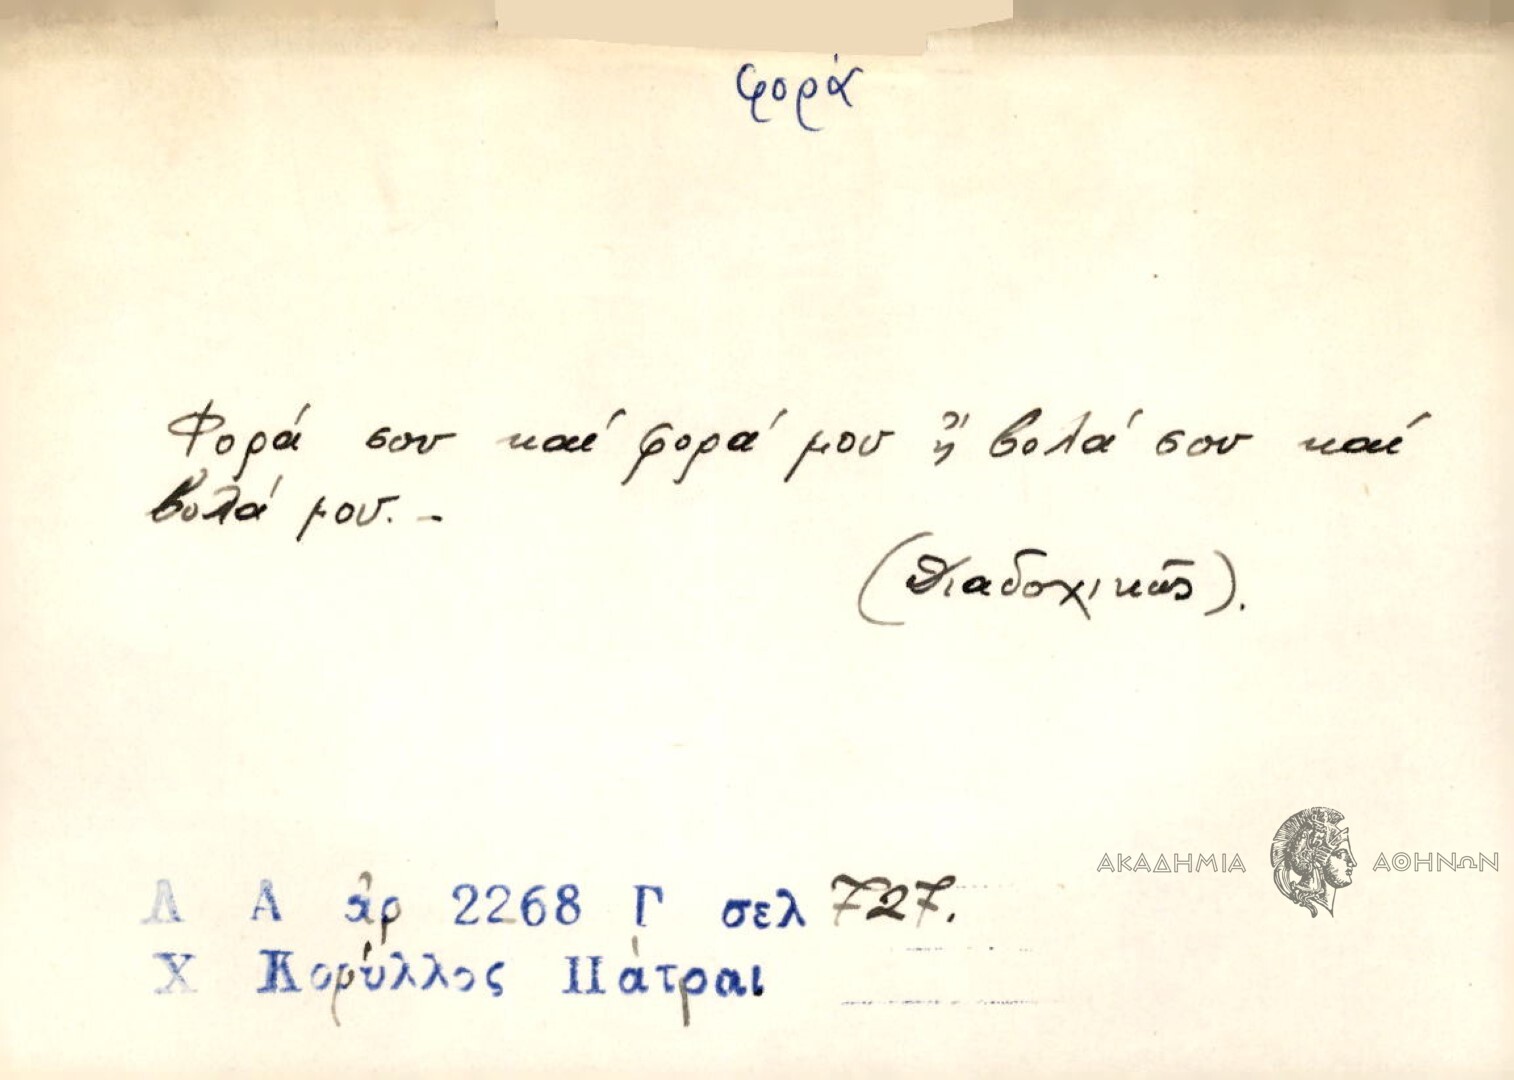 φορά
Φορά σου καί φορά μου ἤ βολά σου καί
βολά μου. -
(Διαδοχικῶς).
ΑΚΑΔΗΜΙΑ ΑΘΗΝΩΝ
Λ Α ἀρ 2268 Γ σελ 727.
Χ Κορύλλος Πάτραι